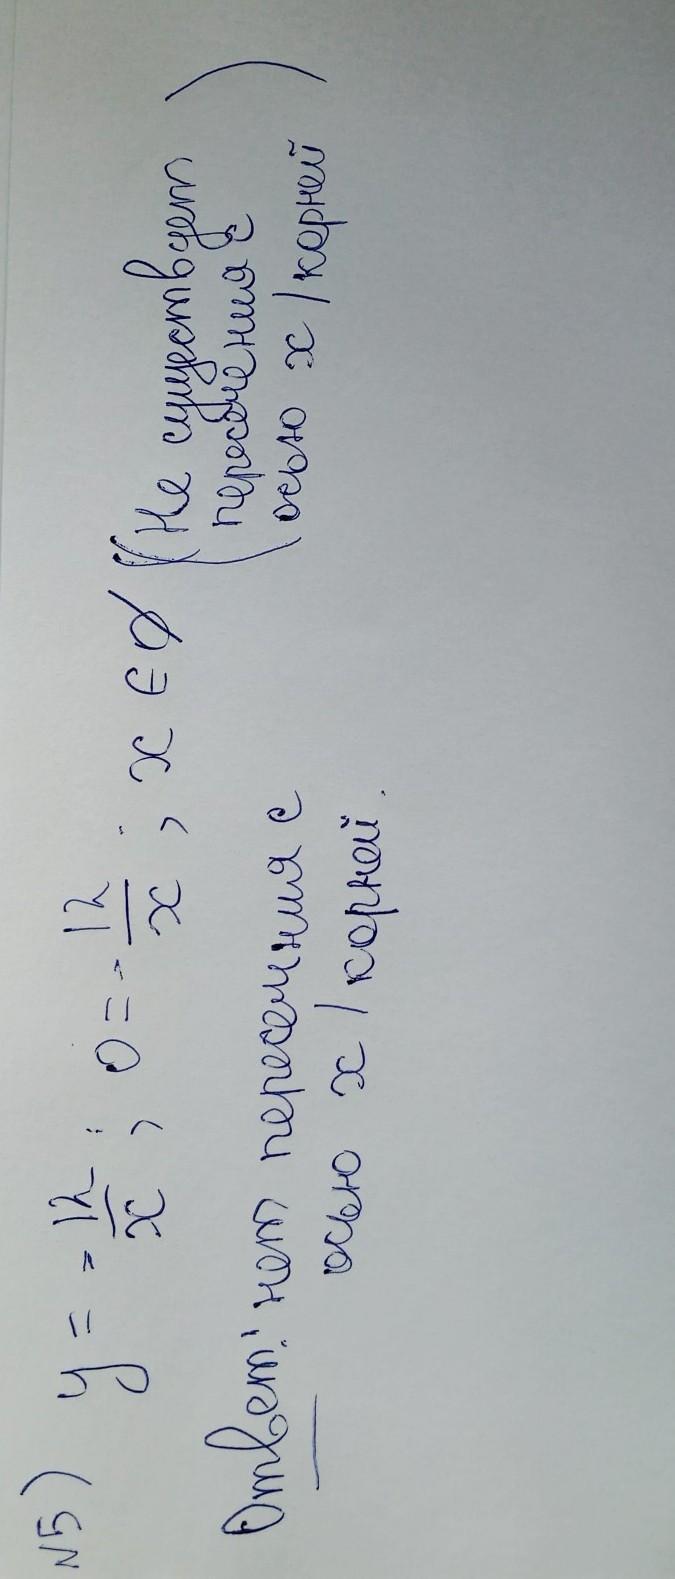 №5) y = - 12/x ; 0 = - 12/x ; x ∈ ∅ (Не существует
пересечения с
осью x / корней)
Ответ: нет пересечния с
осью x / корней.